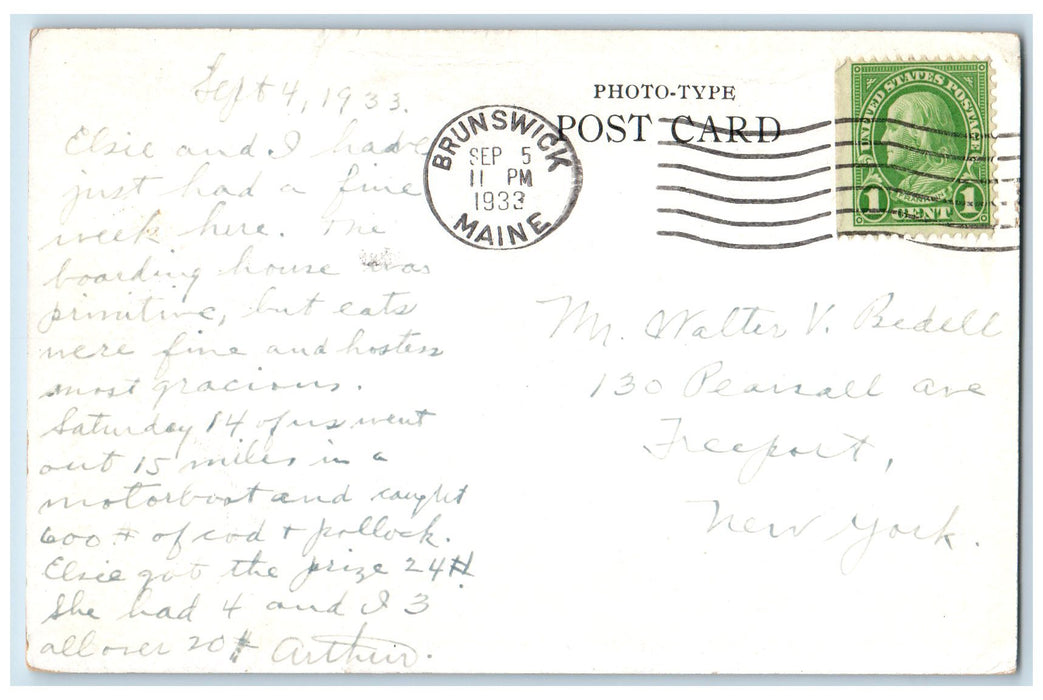 Sept 4, 1933.
Elsie and I have
just had a fine
week here. The
boarding house was
primitive, but eats
were fine and hostess
most gracious.
Saturday 14 of us went
out 15 miles in a
motorboat and caught
600 # of cod + pollock.
Elsie got the prize 24#.
She had 4 and I 3
all over 20 # Arthur.
PHOTO-TYPE
POST CARD
BRUNSWICK
SEP 5
11 PM
1933
MAINE
UNITED STATES POSTAGE
FRANKLIN
1 CENT 1
Mr. Walter V. Bedell
130 Pearsall ave
Freeport,
New York.